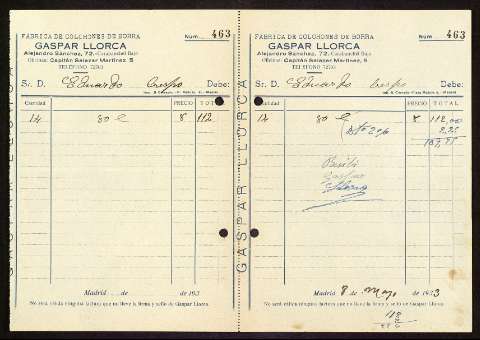 FABRICA DE COLCHONES DE BORRA
Núm. 463
GASPAR LLORCA
Alejandro Sánchez, 72.
Oficina: Capitán Salazar Martínez, 5
TELEFONO
Sr. D. Eduardo Crespo Debe:
Cantidad PRECIO TOTAL
14 80 8 112
Madrid ... de de 193
No será válida ninguna factura que no lleve la firma y sello de Gaspar Llorca.
GASPAR LLORCA
FABRICA DE COLCHONES DE BORRA
Núm. 463
GASPAR LLORCA
Alejandro Sánchez, 72.
Oficina: Capitán Salazar Martínez, 5
TELEFONO
Sr. D. Eduardo Crespo Debe:
Cantidad PRECIO TOTAL
14 80 8 112,00
Dto 2%
Recibí
Gaspar
Llorca
Madrid 8 de Mayo de 1933
No será válida ninguna factura que no lleve la firma y sello de Gaspar Llorca.